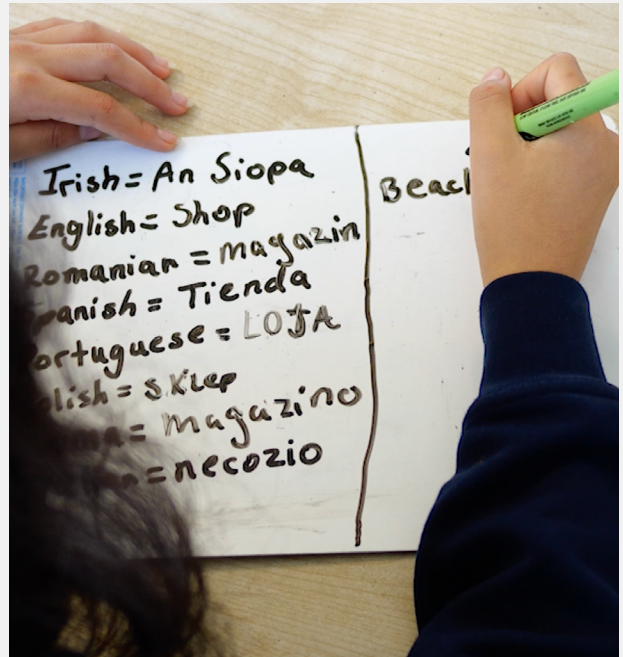 Irish = An Siopa
English = Shop
Romanian = magazin
panish = Tienda
ortuguese = LOJA
lish = sklep
= magazino
= necozio
Beach